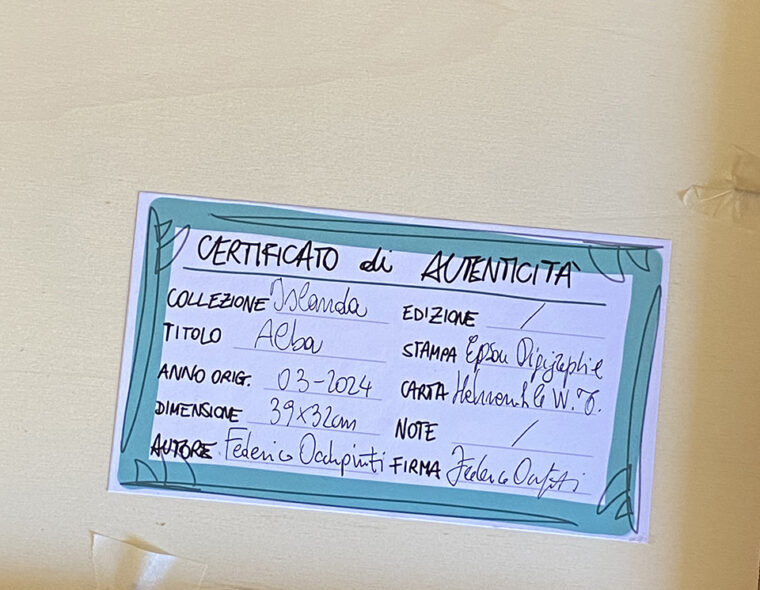 CERTIFICATO di AUTENTICITÀ
COLLEZIONE Islanda
TITOLO Alba
ANNO ORIG. 03-2024
DIMENSIONE 39x32cm
AUTORE Federico Occhipinti
EDIZIONE /
STAMPA Epson Digigraphie
CARTA W.T.
NOTE /
FIRMA Federico